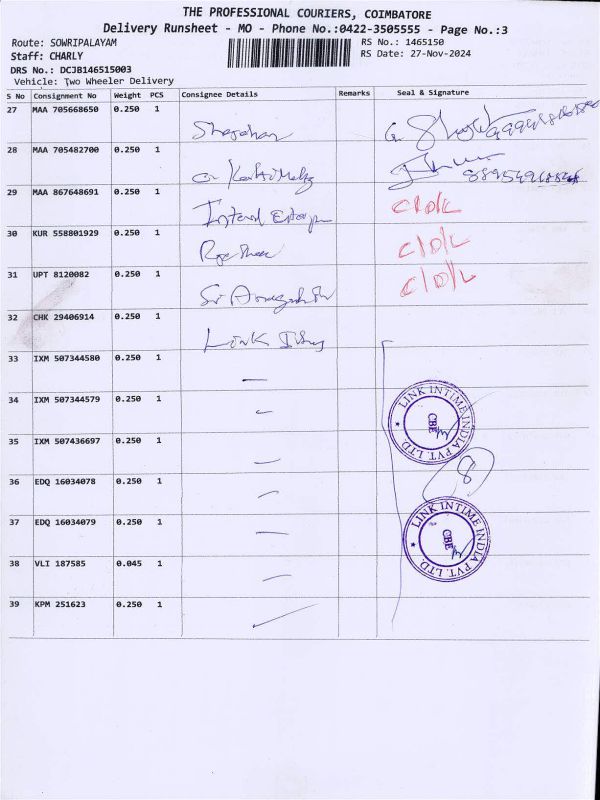 THE PROFESSIONAL COURIERS, COIMBATORE
Delivery Runsheet - MO - Phone No.:0422-3505555 - Page No.:3
Route: SOWRIPALAYAM
RS No.: 1465150
Staff: CHARLY
RS Date: 27-Nov-2024
DRS No.: DCJB146515003
Vehicle: Two Wheeler Delivery
S No Consignment No Weight PCS Consignee Details Remarks Seal & Signature
27 MAA 705668650 0.250 1
28 MAA 705482700 0.250 1
29 MAA 867648691 0.250 1
30 KUR 558801929 0.250 1
31 UPT 8120082 0.250 1
32 CHK 29406914 0.250 1
Link
33 IXM 507344580 0.250 1
34 IXM 507344579 0.250 1
LINK INTIME INDIA PVT. LTD.
CBE
35 IXM 507436697 0.250 1
36 EDQ 16034078 0.250 1
8
37 EDQ 16034079 0.250 1
LINK INTIME INDIA PVT. LTD
CBE
38 VLI 187585 0.045 1
39 KPM 251623 0.250 1